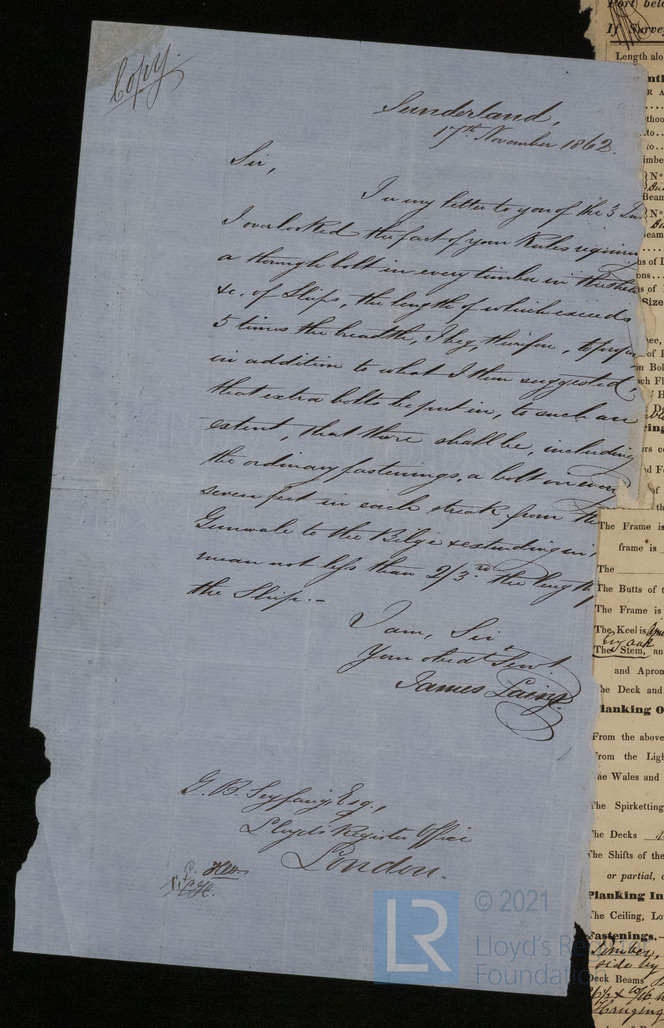 Copy.
Sunderland,
17th November 1862.
Sir,
In my letter to you of the 3
I overlooked the fact of your Rules
a through bolt in every timber in
&c. of Ships, the length of which exceeds
5 times the breadth, I beg, therefore, to
in addition to what I then suggested,
that extra bolts be put in, to such an
extent, that there shall be, including
the ordinary fastenings, a bolt in every
seven feet in each streak from the
Gunwale to the Bilge & extending in
mean not less than 2/3rd the length
the Ship.-
I am, Sir
Your obedt Servt
James Laing
G. B. Seyfang Esq.,
Lloyds Register Office
London.
LR
© 2021
Lloyd's Re
Foundation
Port bel
If Surve
Length alo
The Frame is
frame is
The
The Butts of t
The Frame is
The Keel is
Eng oak
The Stem, an
and Apron
he Deck and
lanking O
From the above
From the Ligh
he Wales and
he Spirketting
he Decks
The Shifts of the
or partial,
Planking In
The Ceiling, Lo
Fastenings.
side by
Deck Beams
Hanging